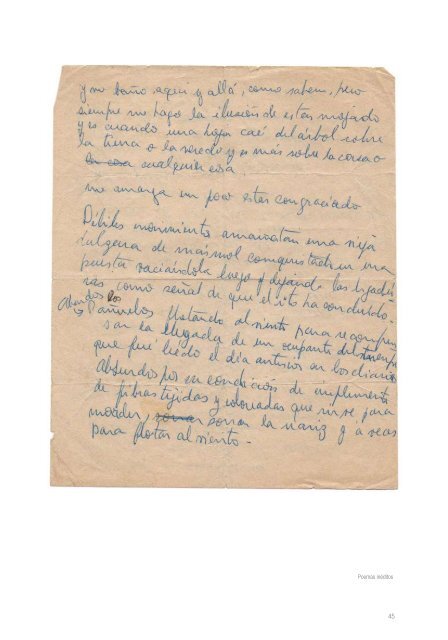 y me baño, aquí y allá, como saben, pero
siempre me hago la ilusión de estar mojado
y es cuando una hoja cae del árbol sobre
la tierra o la vereda y es más sobre la cama o
la cosa cualquier cosa,
me amarga un poco estar congraciado
Débiles movimientos una vieja
de mármol conquistada en una
puesta vaciándola luego y dejando las
como señal de que el rito ha concluido.
Absurdos los
Pañuelos flotando al viento para
la llegada de un ocupante
que fue leído el día anterior en los diarios
Absurdos por su condición de implementos
de fibras tejidas y coloreadas que sirve para
sonar sonar la nariz y a veces
para flotar al viento.
Poemas inéditos
45